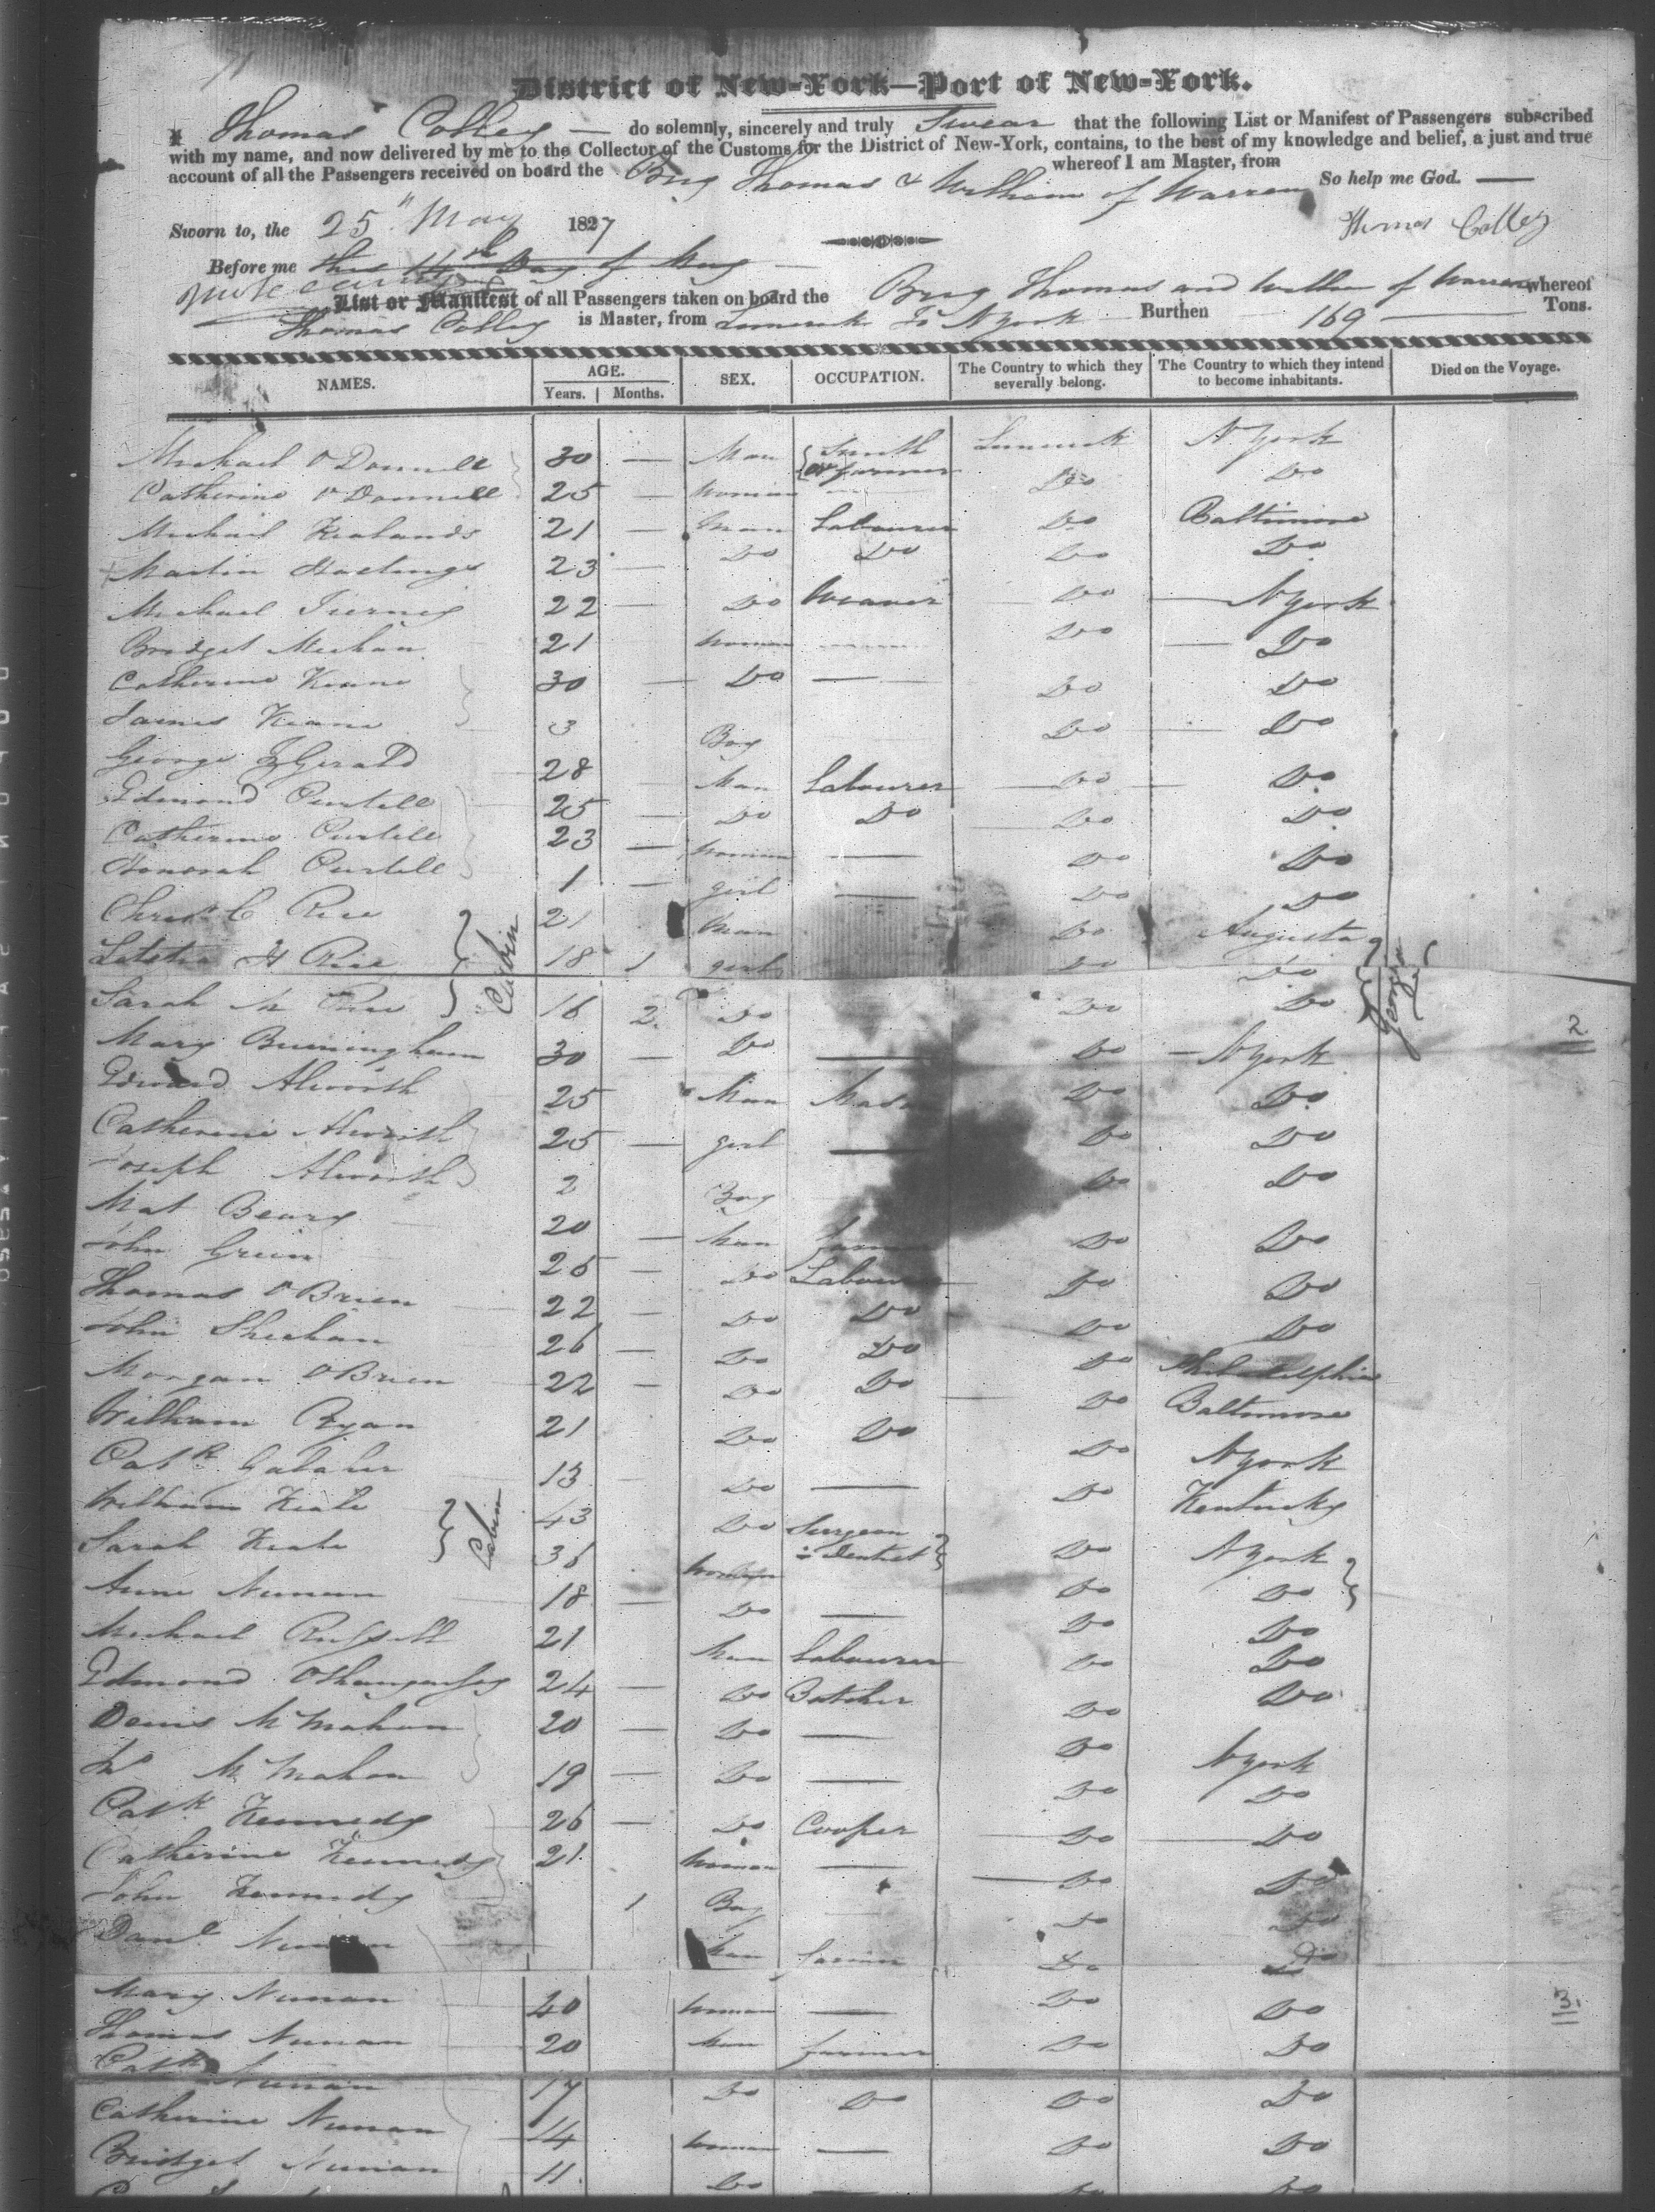 District of New-York—Port of New-York.
I Thomas Colley — do solemnly, sincerely and truly Swear that the following List or Manifest of Passengers subscribed
with my name, and now delivered by me to the Collector of the Customs for the District of New-York, contains, to the best of my knowledge and belief, a just and true
account of all the Passengers received on board the Brig Thomas & William of Warren whereof I am Master, from
So help me God. —
Sworn to, the 25" May 1827 Thomas Colley
Before me this 14th Day of May —
List or Manifest of all Passengers taken on board the Brig Thomas and William of Warren whereof
Thomas Colley is Master, from Limerick To N York Burthen 169 Tons.
NAMES. AGE. Years. Months. SEX. OCCUPATION. The Country to which they severally belong. The Country to which they intend to become inhabitants. Died on the Voyage.
Michael O Donnell 30 — Man Smith or farmer Limerick N York
Catherine O Donnell 25 — Woman Do Do
Michael 21 — Man Labourer Do Baltimore
Martin Hastings 23 — Do Do Do Do
Michael Tierney 22 — Do Weaver Do N York
Bridget Meehan 21 Woman Do Do
Catherine Keane 30 — Do — Do Do
James Keane 3 Boy Do Do
George FzGerald 28 — Man Labourer Do Do
Edmond Purtell 25 — Do Do Do Do
Catherine Purtell 23 — Woman — Do Do
Honorah Purtell 1 — girl — Do Do
C Rice 21 Man Do Augusta
Letetia H Rice 18 1 girl Do Do
Cabin
Georgia
Sarah M Rice 16 2 Do Do Do
2
Mary Burmingham 30 — Do — Do N York
Edward Alworth 25 Man Do Do
Catherine Alworth 25 — girl — Do Do
Joseph Alworth 2 Boy Do Do
Mat Beary 20 — Man Do Do
John Green 26 — Do Labourer Do Do
Thomas O Brien 22 — Do Do Do Do
John Sheehan 26 — Do Do Do Philadelphia
Morgan O Brien 22 — Do Do Do Baltimore
William Ryan 21 Do Do Do N York
Patk 13 Do — Do Kentucky
William Keate 43 Do Surgeon Dentist Do N York
Sarah Keate 36 Woman Do Do
Cabin
Anne Nunan 18 — Do — Do Do
Michael Russell 21 Man Labourer Do Do
Edmond 24 — Do Butcher Do Do
Denis McMahon 20 — Do — Do N York
McMahon 19 — Do — Do Do
Patk Kennedy 26 — Do Cooper Do Do
Catherine Kennedy 21 Woman — Do Do
John Kennedy 1 Boy Do Do
Danl Nunan Man farmer Do Do
Mary Nunan 40 Woman — Do Do
3.
Thomas Nunan 20 Man farmer Do Do
Patk Nunan 17 Do Do Do Do
Catherine Nunan 14 Woman — Do Do
Bridget Nunan 11 Do — Do Do